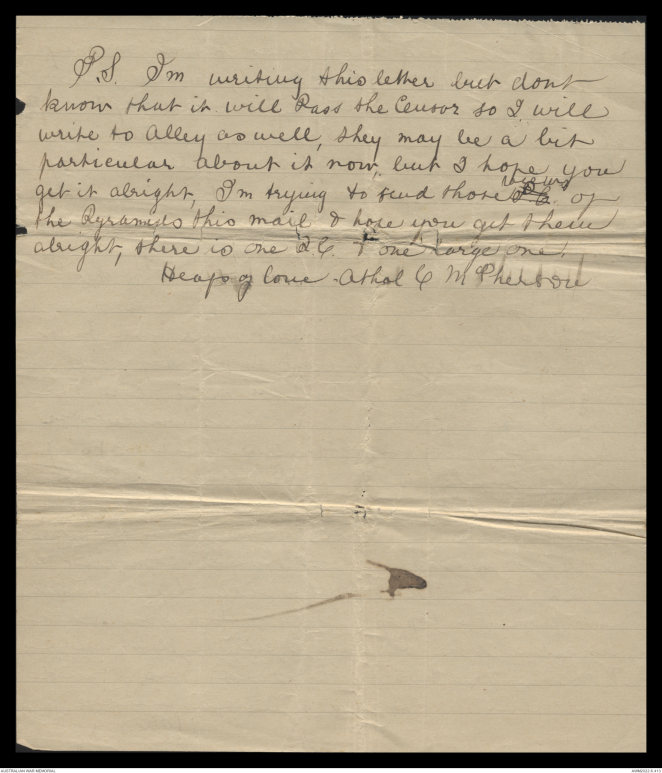 P.S. Im writing this letter but dont
know that it will Pass the Censor so I will
write to Alley as well, they may be a bit
particular about it now, but I hope you
get it alright, Im trying to send those views of
the Pyramids this mail & hope you get them
alright, there is one P.C. & one Large one.
Heaps of love Athol C McPherson
AUSTRALIAN WAR MEMORIAL